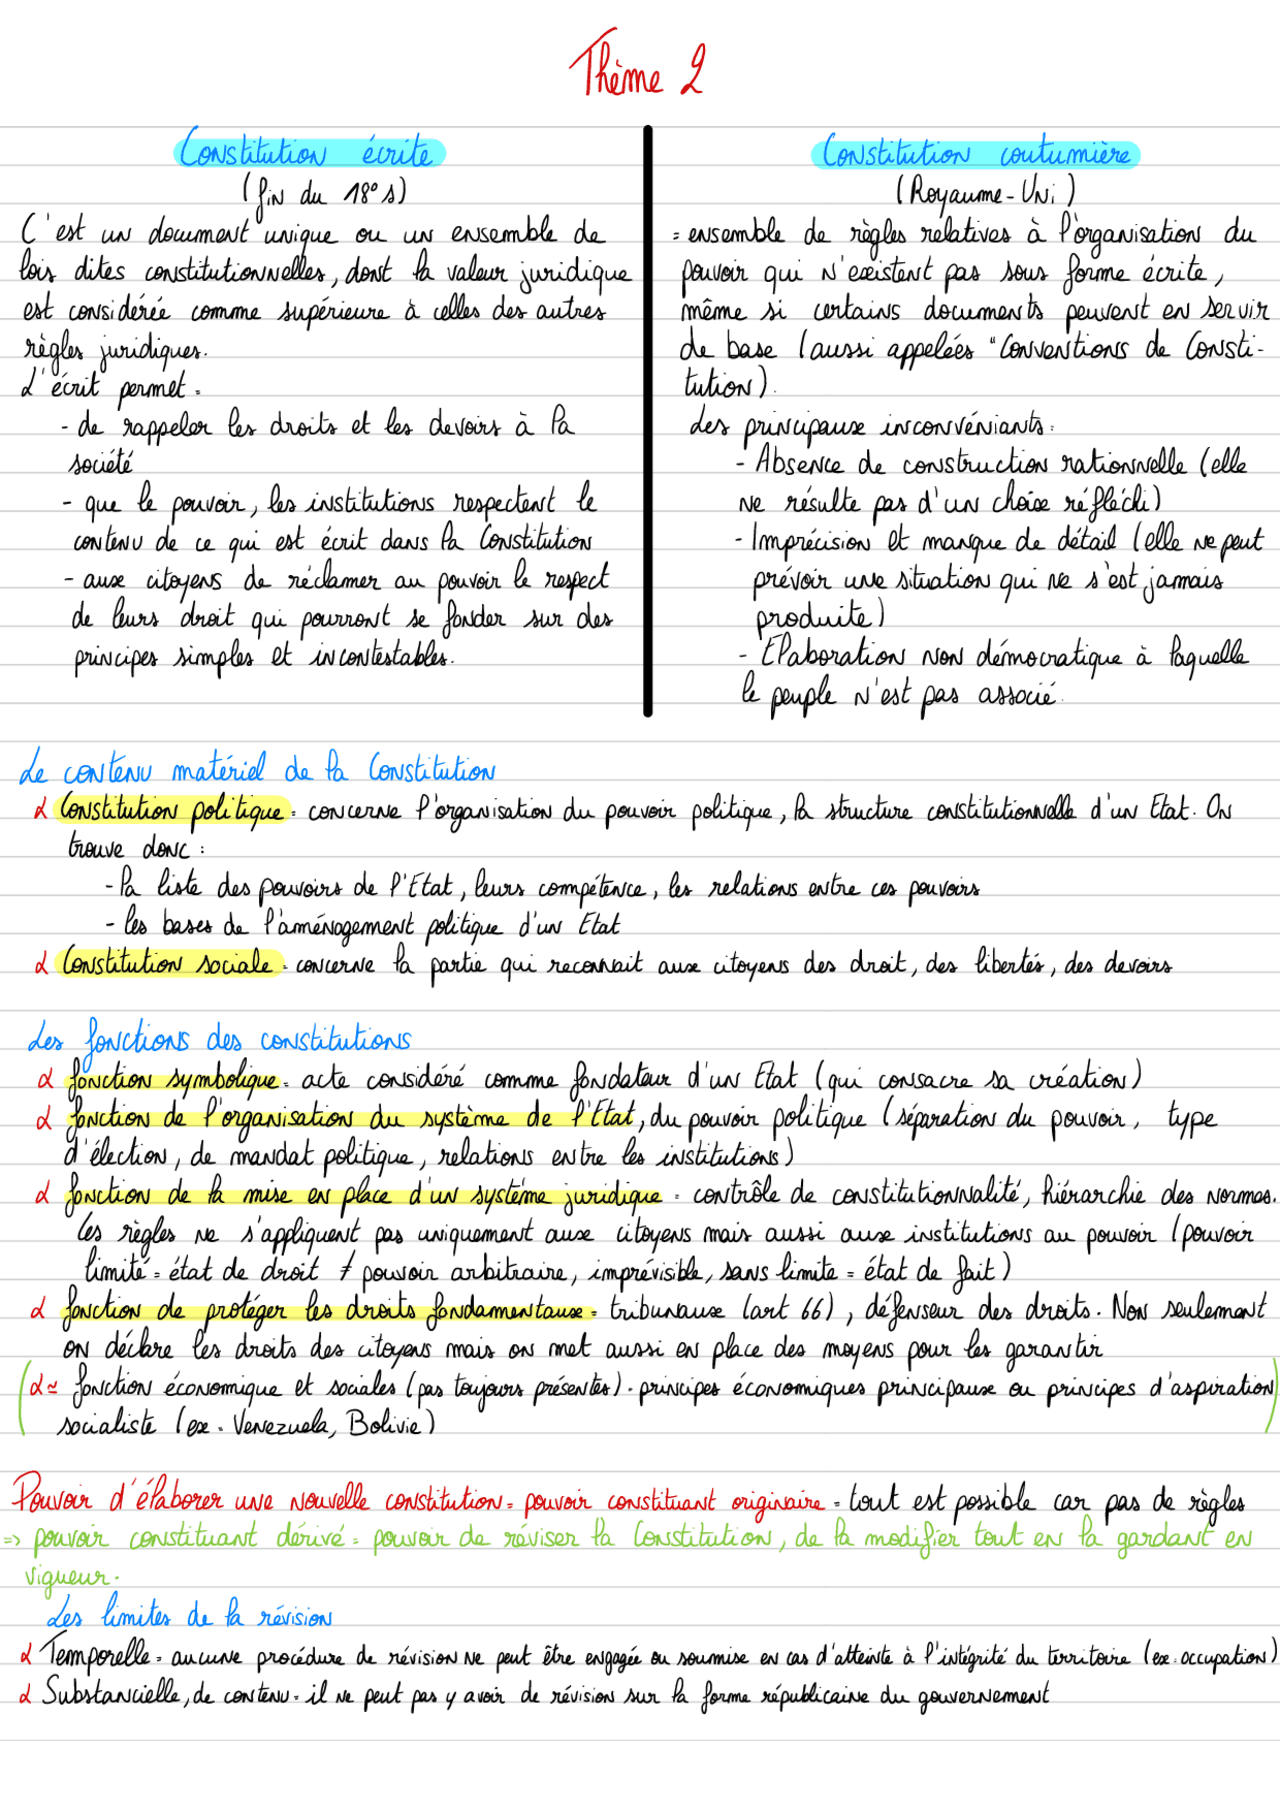 Thème 2
Constitution écrite
(fin du 18° s)
C'est un document unique ou un ensemble de
lois dites constitutionnelles, dont la valeur juridique
est considérée comme supérieure à celles des autres
règles juridiques.
L'écrit permet :
- de rappeler les droits et les devoirs à la
société
- que le pouvoir, les institutions respectent le
contenu de ce qui est écrit dans la Constitution
- aux citoyens de réclamer au pouvoir le respect
de leurs droit qui pourront se fonder sur des
principes simples et incontestables.
Constitution coutumière
(Royaume-Uni)
= ensemble de règles relatives à l'organisation du
pouvoir qui n'existent pas sous forme écrite,
même si certains documents peuvent en servir
de base (aussi appelées "Conventions de Consti-
tution).
Les principaux inconvéniants :
- Absence de construction rationnelle (elle
ne résulte pas d'un choix réfléchi)
- Imprécision et manque de détail (elle ne peut
prévoir une situation qui ne s'est jamais
produite)
- Elaboration non démocratique à laquelle
le peuple n'est pas associé.
Le contenu matériel de la Constitution
α Constitution politique : concerne l'organisation du pouvoir politique, la structure constitutionnelle d'un Etat. On
trouve donc :
- la liste des pouvoirs de l'Etat, leurs compétence, les relations entre ces pouvoirs
- les bases de l'aménagement politique d'un Etat
α Constitution sociale : concerne la partie qui reconnait aux citoyens des droit, des libertés, des devoirs
Les fonctions des constitutions
α fonction symbolique : acte considéré comme fondateur d'un Etat (qui consacre sa création)
α fonction de l'organisation du système de l'Etat, du pouvoir politique (séparation du pouvoir, type
d'élection, de mandat politique, relations entre les institutions)
α fonction de la mise en place d'un système juridique : contrôle de constitutionnalité, hiérarchie des normes.
Ces règles ne s'appliquent pas uniquement aux citoyens mais aussi aux institutions au pouvoir (pouvoir
limité = état de droit ≠ pouvoir arbitraire, imprévisible, sans limite = état de fait)
α fonction de protéger les droits fondamentaux : tribunaux (art 66), défenseur des droits. Non seulement
on déclare les droits des citoyens mais on met aussi en place des moyens pour les garantir
(α ≃ fonction économique et sociales (pas toujours présentes) : principes économiques principaux ou principes d'aspiration
socialiste (ex : Venezuela, Bolivie))
Pouvoir d'élaborer une nouvelle constitution = pouvoir constituant originaire = tout est possible car pas de règles
=> pouvoir constituant dérivé = pouvoir de réviser la Constitution, de la modifier tout en la gardant en
vigueur.
Les limites de la révision
α Temporelle : aucune procédure de révision ne peut être engagée ou soumise en cas d'atteinte à l'intégrité du territoire (ex : occupation)
α Substancielle, de contenu : il ne peut pas y avoir de révision sur la forme républicaine du gouvernement